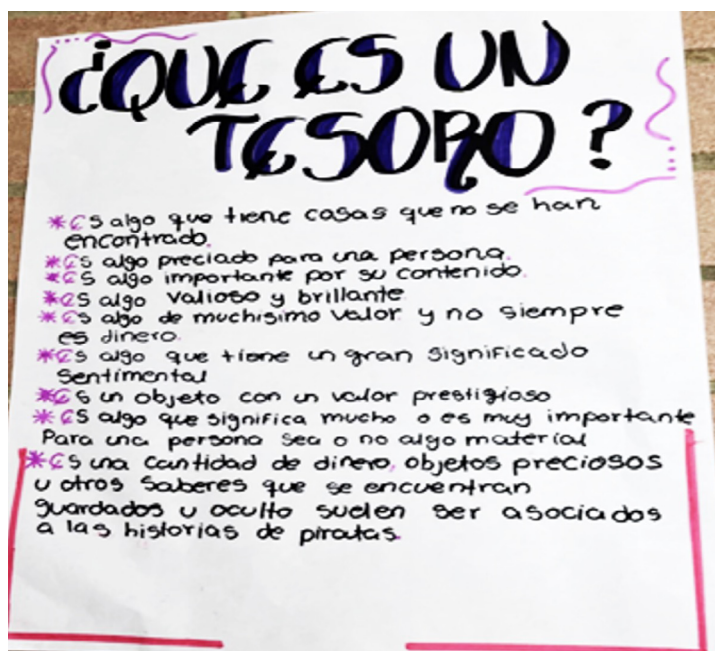 ¿QUE ES UN
TESORO?
*ES algo que tiene cosas que no se han
encontrado.
*ES algo preciado para una persona.
*ES algo importante por su contenido.
*ES algo valioso y brillante
*ES algo de muchisimo valor y no siempre
es dinero.
*ES algo que tiene un gran significado
Sentimental
*ES un objeto con un valor prestigioso
*ES algo que significa mucho o es muy importante
Para una persona sea o no algo material
*ES una cantidad de dinero, objetos preciosos
u otros saberes que se encuentran
guardados u oculto suelen ser asociados
a las historias de piratas.